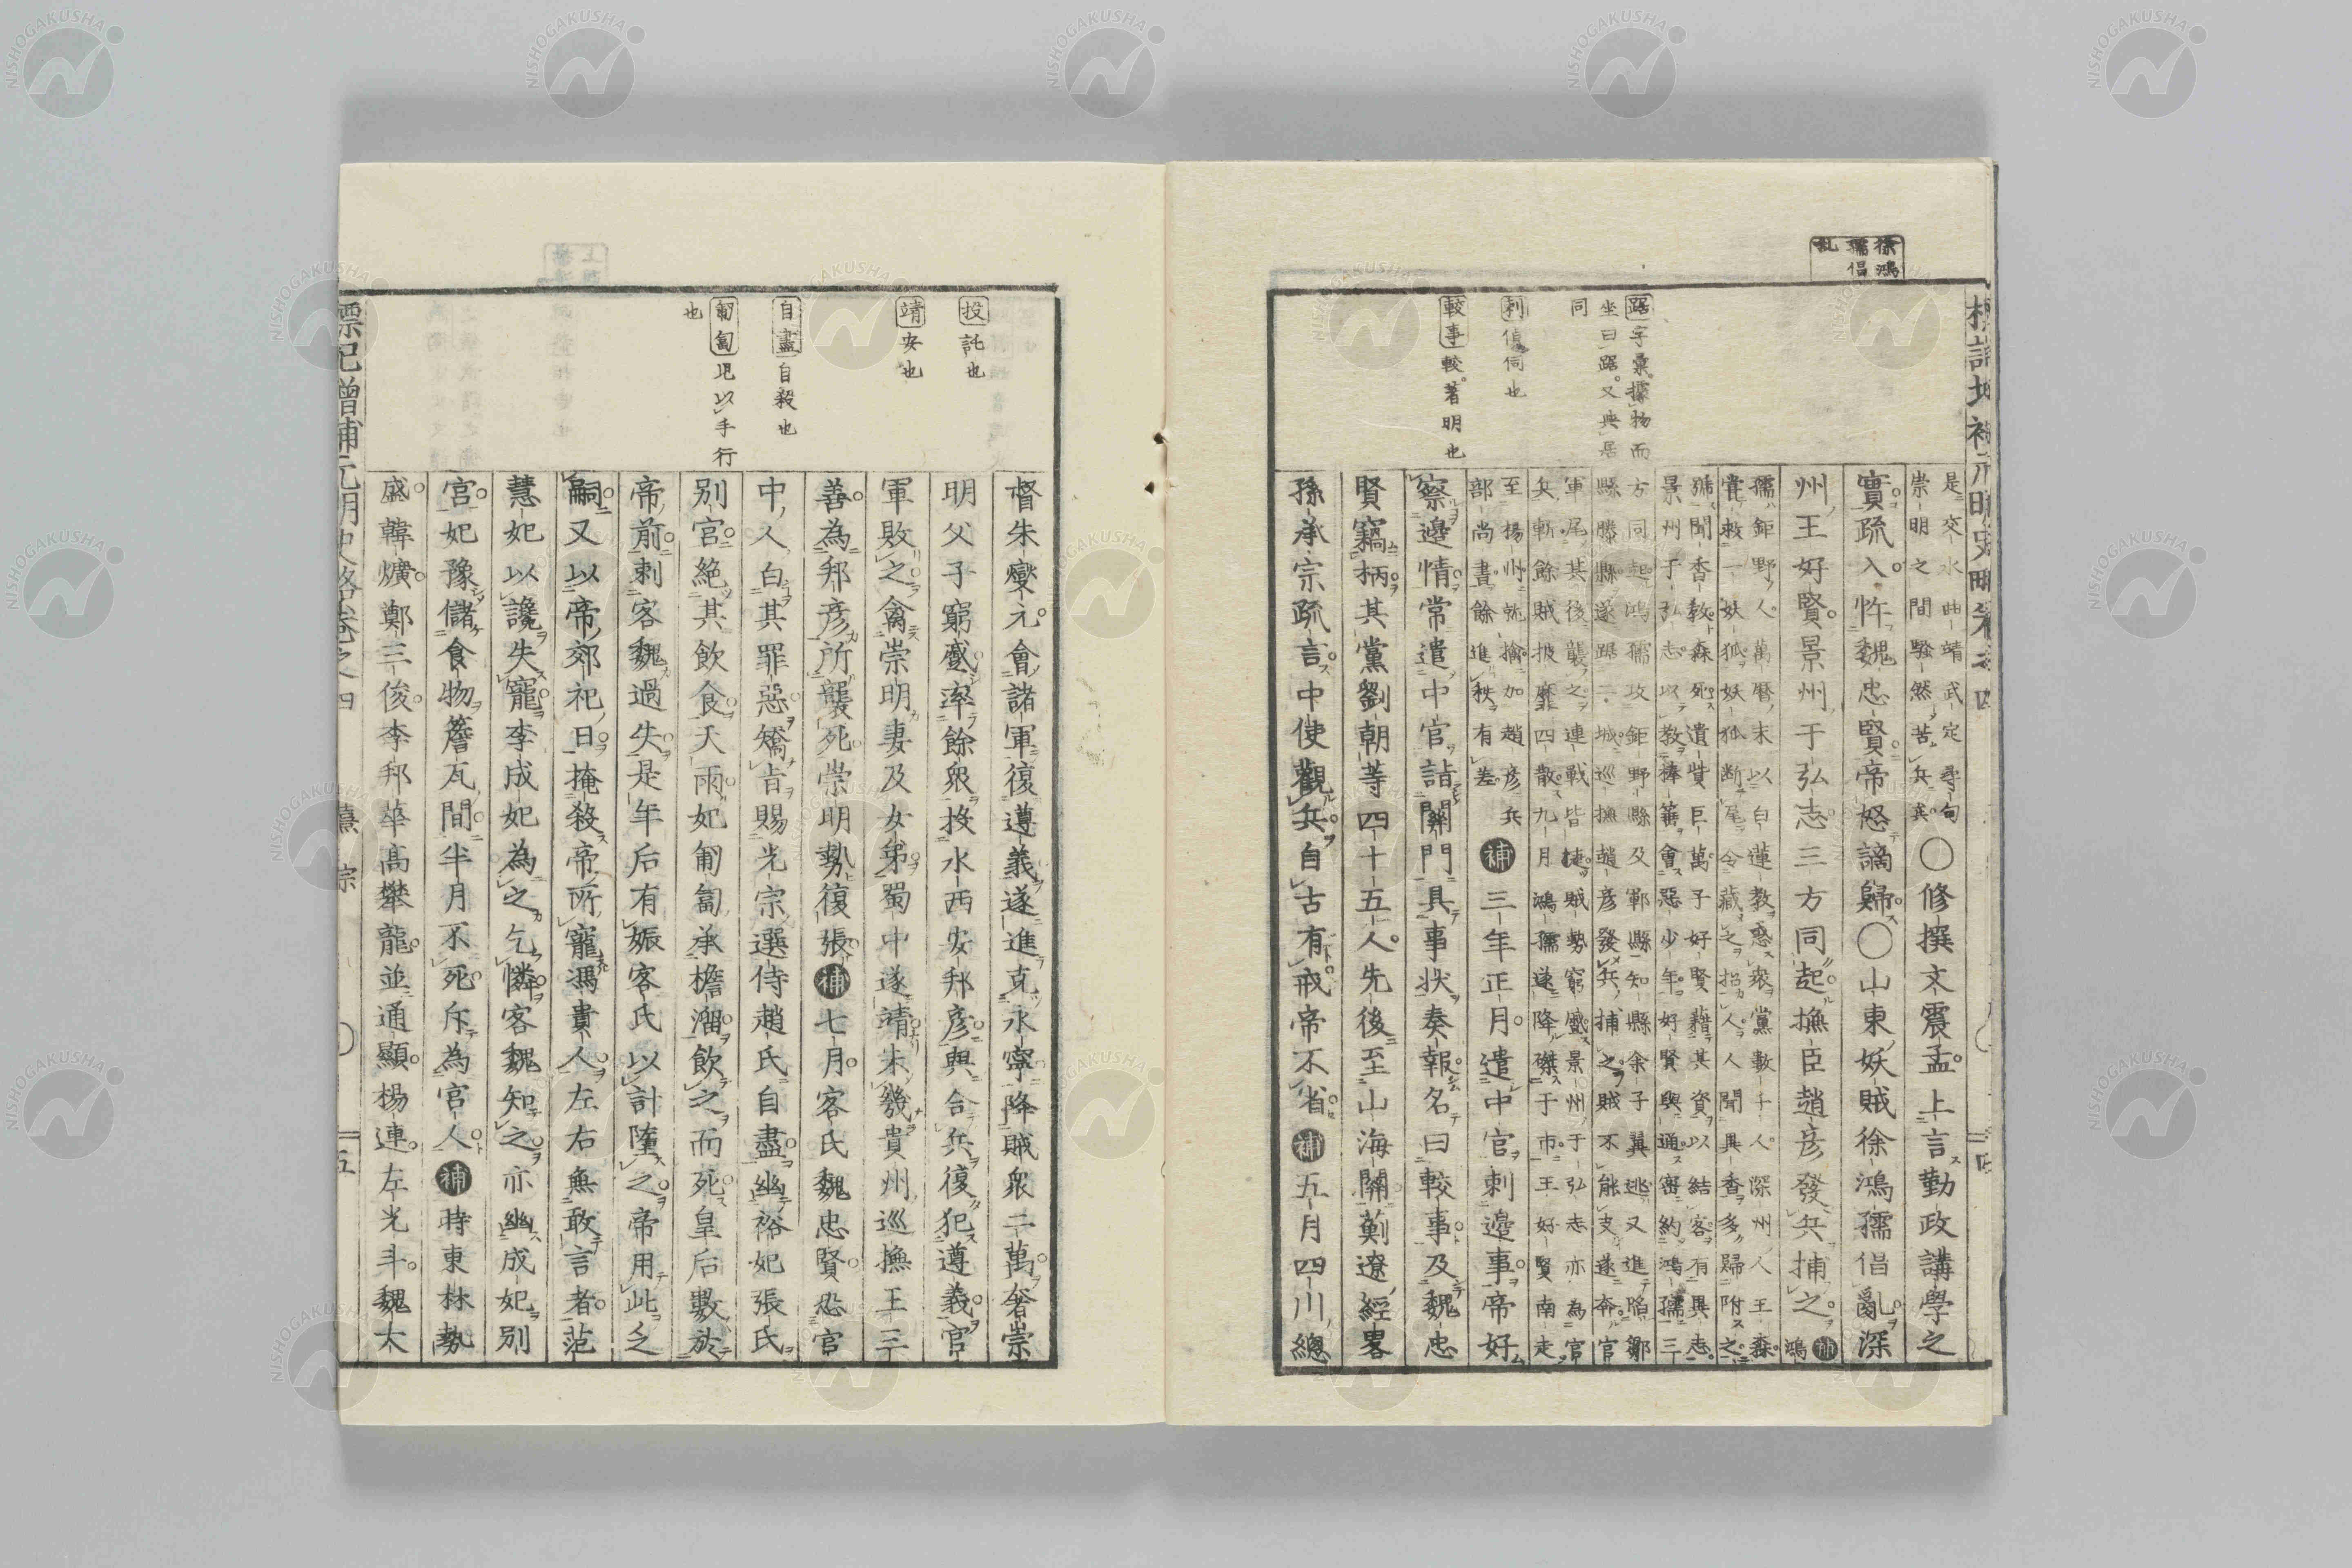 徐鴻
儒倡
乱
踞字彙據物而
坐曰踞又與居
同
刺偵伺也
較事較著明也
是交水曲靖武定尋甸
崇明之間騷然苦兵
○修撰文震孟上言勤政講學之
實疏入忤魏忠賢帝怒謫歸○山東妖賊徐鴻孺倡亂深
州王好賢景州于弘志三方同起撫臣趙彦發兵捕之補鴻
孺鉅野人萬曆末以白蓮教惑衆黨數千人深州人王森
嘗救一妖狐妖狐断尾令藏之招人人聞異香多歸附之
號聞香教森死遺貲巨萬子好賢藉其資以結客有異志
景州于弘志以教棒箠會惡少年好賢與通密約鴻孺三
方同起鴻孺攻鉅野縣及鄆縣知縣余子翼逃又進陷鄒
縣滕縣遂踞二城巡撫趙彦發兵捕之賊不能支遂奔官
軍尾其後襲之連戰皆捷賊勢窮蹙景州于弘志亦為官
兵斬餘賊披靡四散九月鴻孺遂降磔于市王好賢南走
至揚州就擒加趙彦兵
部尚書餘進秩有差
補三年正月遣中官刺邊事帝好
察邊情常遣中官詣關門具事状奏報名曰較事及魏忠
賢竊柄其黨劉朝等四十五人先後至山海關薊遼經畧
孫承宗疏言中使觀兵自古有戒帝不省補五月四川總
投託也
靖安也
自盡自殺也
匍匐児以手行
也
督朱燮元會諸軍復遵義遂進克永寧降賊衆二萬奢崇
明父子窮蹙率餘衆投水西安邦彦與合兵復犯遵義官
軍敗之禽崇明妻及女弟蜀中遂靖朱幾貴州巡撫王三
善為邦彦所襲死崇明勢復張補七月客氏魏忠賢恐官
中人白其罪惡矯旨賜光宗選侍趙氏自盡幽裕妃張氏
別官絶其飲食天雨妃匍匐承檐溜飲之而死皇后數於
帝前刺客魏過失是年后有娠客氏以計墮之帝用此乏
嗣又以帝郊祀日掩殺帝所寵馮貴人左右無敢言者范
慧妃以讒失寵李成妃為之乞憐客魏知之亦幽成妃別
宮妃豫儲食物簷瓦間半月不死斥為官人補時東林勢
盛韓爌鄭三俊李邦華高攀龍並通顯楊連左光斗魏大
標記增補元明史略卷之四
熹宗